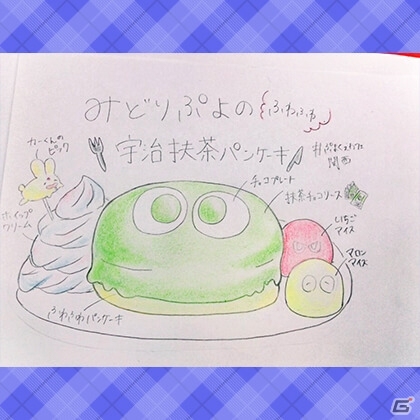 みどりぷよの
ふわふわ
宇治抹茶パンケーキ
カーくんの
ピック
関西
チョコプレート
抹茶チョコソース
ホイップ
クリーム
いちご
アイス
マロン
アイス
ふわふわパンケーキ